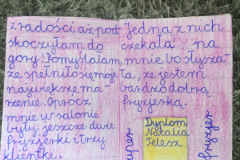 z radości aż pod-
skoczyłam do
góry. Pomyślałam,
że spełniło się moje
największe ma-
rzenie. Oprócz
mnie w salonie
były jeszcze dwie
fryzjerki i trzy
klientki.
Jedna z nich
czekała na
mnie bo słysza-
ła, że jestem
bardzo dobrą
fryzjerką.
Dyplom
Natalia
fryzjer